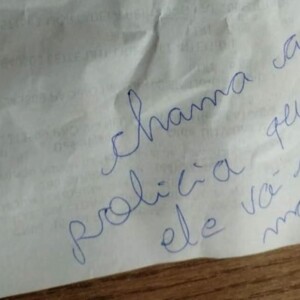 chama a
policia que
ele vá